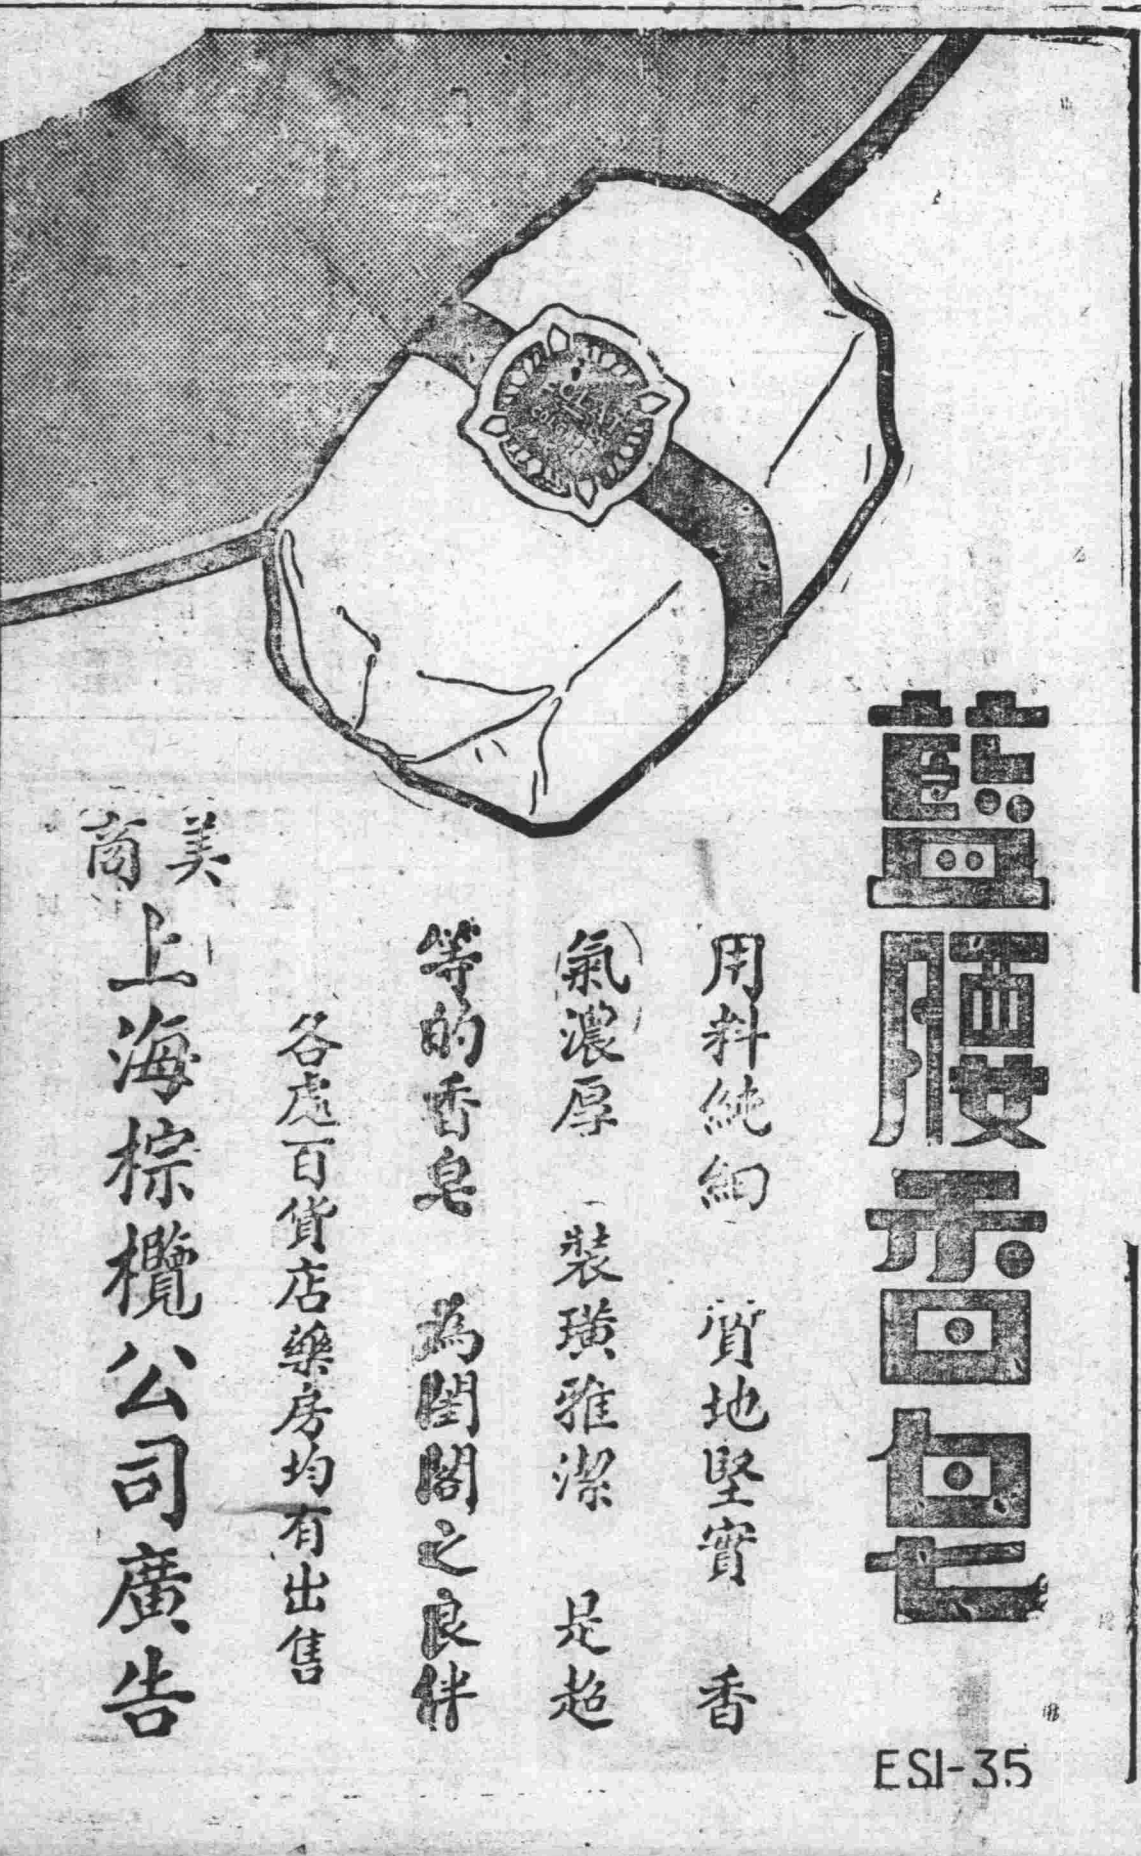 藍腰香皂
用料純細 質地堅實 香
氣濃厚 裝璜雅潔 是超
等的香皂 為閨閣之良伴
各處百貨店藥房均有出售
美商
上海棕欖公司廣告
ESI-35